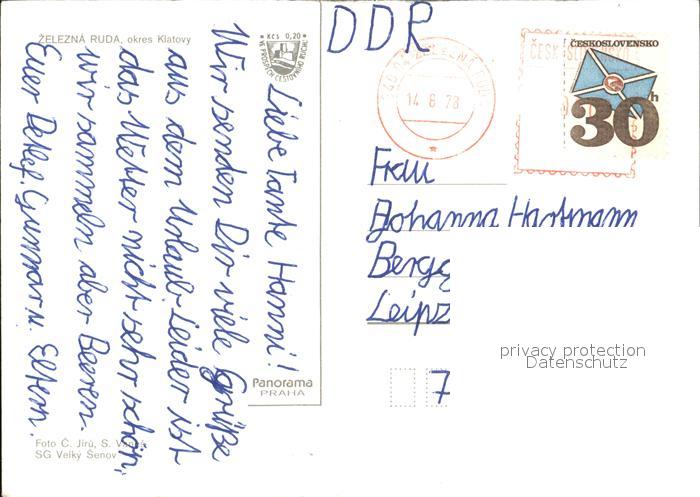 ŽELEZNÁ RUDA, okres Klatovy
Kčs 0,20
VE PROSPĚCH CESTOVNÍHO RUCHU
Liebe Tante Hanni!
Wir senden Dir viele Grüße
aus dem Urlaub. Leider ist
das Wetter nicht sehr schön,
wir sammeln aber Beeren.
Euer Detlef, Gunnar u. Eltern.
Panorama
PRAHA
Foto Č. Jírů, S.
SG Velký Šenov
DDR
14.8.78
ČESKOSLOVENSKO
30h
Frau
Johanna Hartmann
Bergg
Leipz
7
privacy protection
Datenschutz